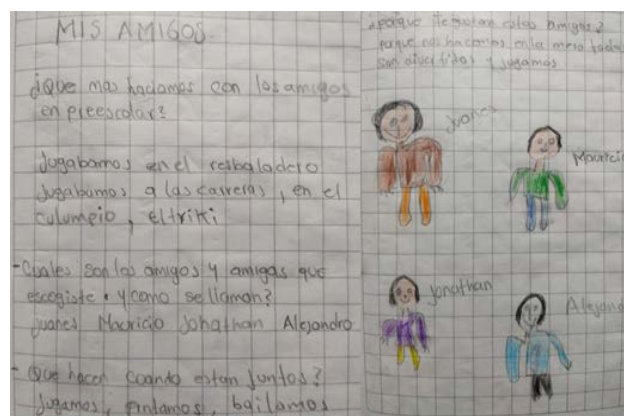 MIS AMIGOS.
¿Que mas haciamos con los amigos
en preescolar?
Jugabamos en el resbaladero
Jugabamos a las carreras, en el
columpio, el triki
-Cuales son los amigos y amigas que
escogiste. y como se llaman?
Juanes Mauricio Johathan Alejandro
- Que hacen cuando estan juntos?
Jugamos, pintamos, bailamos
porque te gustan estos amigos?
porque nos hacemos en la mesa todos
son divertidos y jugamos
Juanes
Mauricio
Jonathan
Alejand